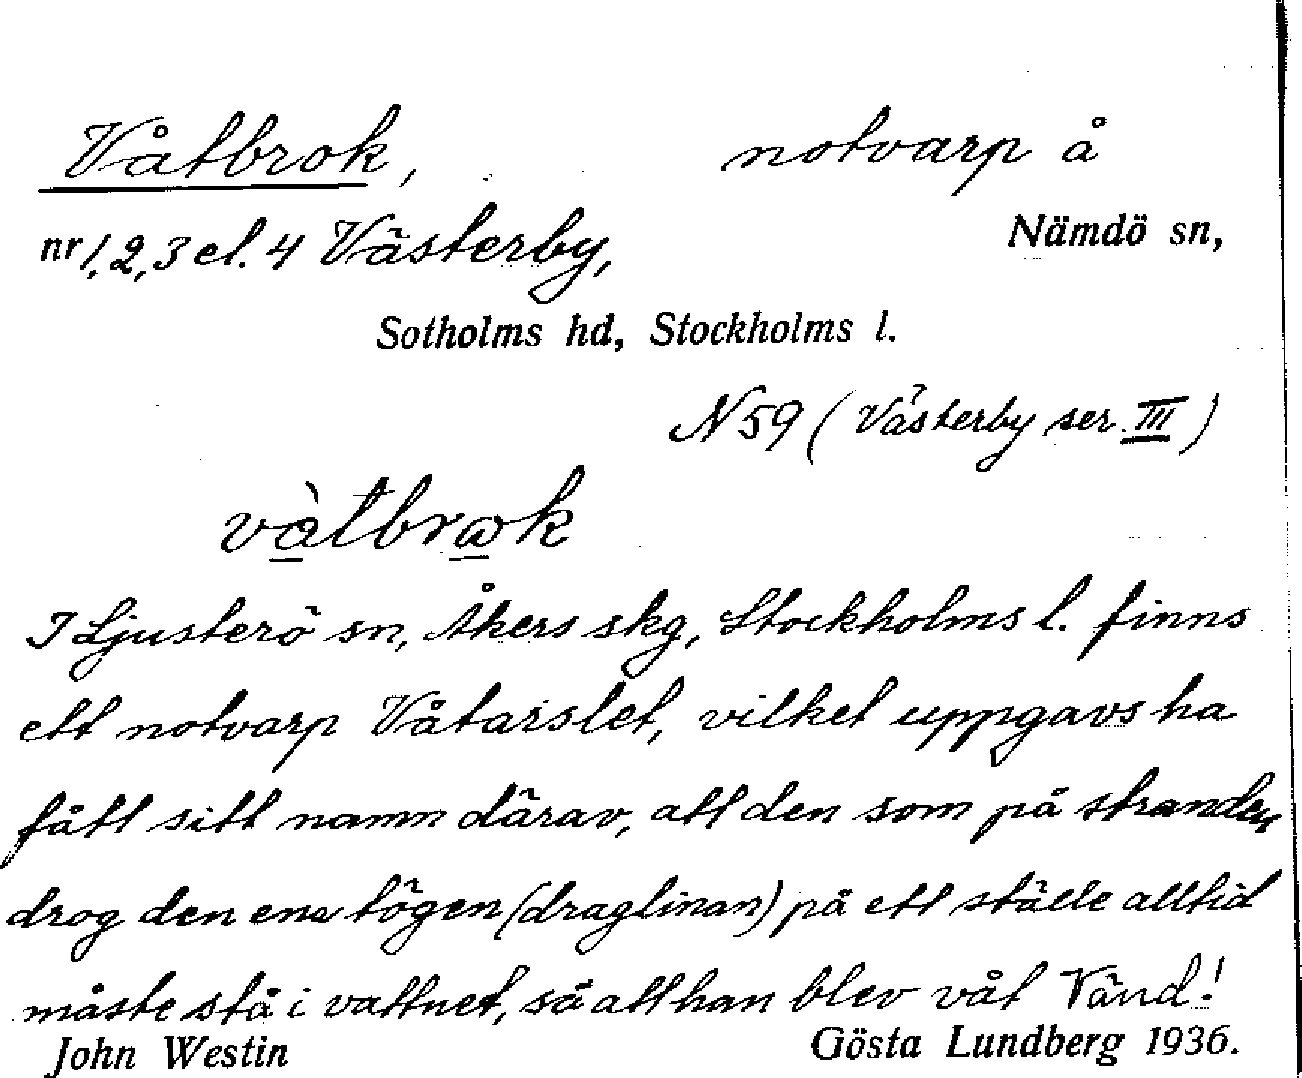 Våtbrok, notvarp å
nr 1, 2, 3 el. 4 Västerby, Nämdö sn,
Sotholms hd, Stockholms l.
N 59 (Västerby ser. III)
I Ljusterö sn, Åkers skg, Stockholms l. finns
ett notvarp Våtarslet, vilket uppgavs ha
fått sitt namn därav, att den som på stranden
drog den ena tögen (draglinan) på ett ställe alltid
måste stå i vattnet, så att han blev våt Vänd!
John Westin Gösta Lundberg 1936.